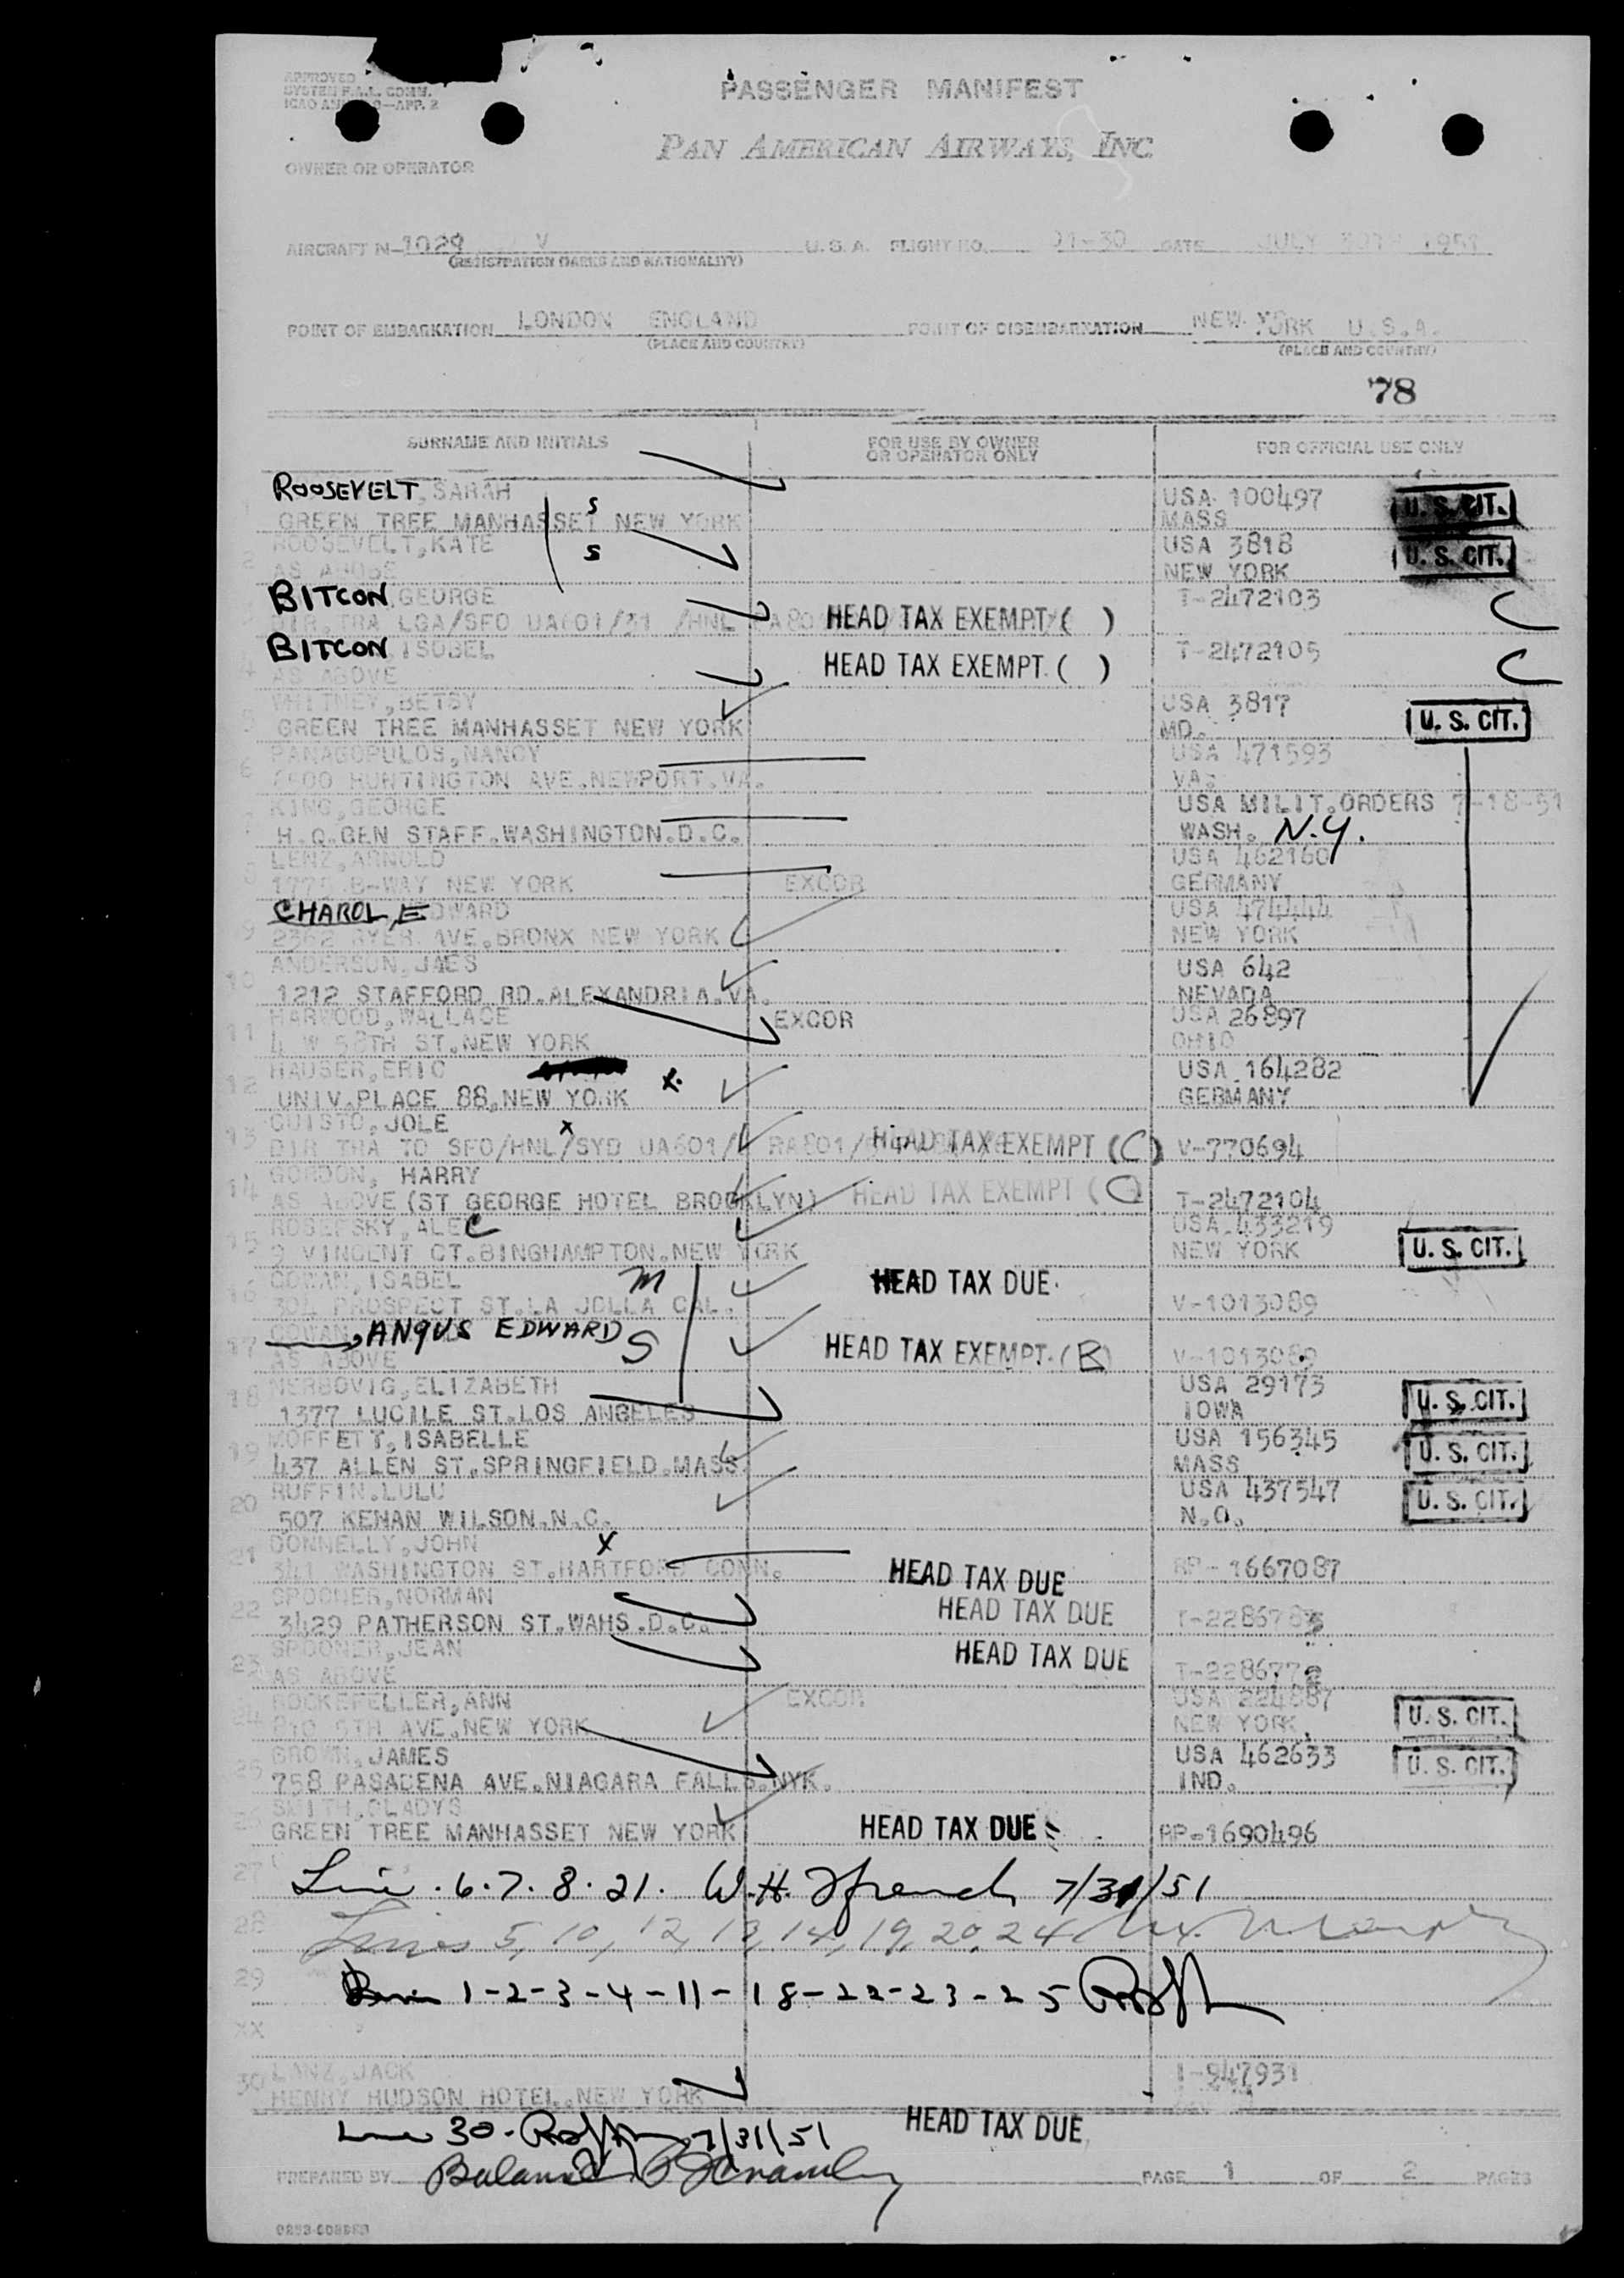 APPROVED
SYSTEM F.A.L. COMM.
ICAO 9—APP. 2
PASSENGER MANIFEST
PAN AMERICAN AIRWAYS, INC.
OWNER OR OPERATOR
AIRCRAFT N-1029 V U.S.A. FLIGHT NO. 01-30 DATE JULY 1951
(REGISTRATION MARKS AND NATIONALITY)
POINT OF EMBARKATION LONDON ENGLAND POINT OF DISEMBARKATION NEW YORK U.S.A.
(PLACE AND COUNTRY) (PLACE AND COUNTRY)
78
SURNAME AND INITIALS FOR USE BY OWNER OR OPERATOR ONLY FOR OFFICIAL USE ONLY
ROOSEVELT, SARAH S USA 100497 U. S. CIT.
1 GREEN TREE MANHASSET NEW YORK MASS
ROOSEVELT, KATE S USA 3818 U. S. CIT.
2 AS ABOVE NEW YORK
BITCON, GEORGE T-2472103 C
3 DIR TRA LGA/SFO UA601/31 /HNL HEAD TAX EXEMPT ( )
BITCON, ISOBEL T-2472105 C
4 AS ABOVE HEAD TAX EXEMPT ( )
WHITNEY, BETSY USA 3817 U. S. CIT.
5 GREEN TREE MANHASSET NEW YORK MD.
PANAGOPULOS, NANCY USA 471593
6 HUNTINGTON AVE.NEWPORT.VA. VA.
KING, GEORGE USA MILIT.ORDERS 7-18-51
7 H.Q.GEN STAFF.WASHINGTON.D.C. WASH. N.Y.
LENZ, ARNOLD USA 462160
8 1775 B-WAY NEW YORK EXCOR GERMANY
CHAROL, EDWARD USA 474444
9 2362 RYER AVE.BRONX NEW YORK NEW YORK
ANDERSON, JAES USA 642
10 1212 STAFFORD RD.ALEXANDRIA.VA. NEVADA
HARWOOD, WALLACE EXCOR USA 26897
11 4 W 58TH ST.NEW YORK OHIO
HAUSER, ERIC X USA 164282
12 UNIV.PLACE 88,NEW YORK GERMANY
GUISTO, JOLE X
13 DIR TRA TO SFO/HNL/SYD UA601/ HEAD TAX EXEMPT (C) V-770694
GORDON, HARRY
14 AS ABOVE (ST GEORGE HOTEL BROOKLYN) HEAD TAX EXEMPT (C) T-2472104
ROSEFSKY, ALEC USA 433219
15 9 VINCENT CT.BINGHAMPTON.NEW YORK NEW YORK U. S. CIT.
COWAN, ISABEL M HEAD TAX DUE
16 304 PROSPECT ST.LA JOLLA CAL. V-1013089
COWAN, ANGUS EDWARD S
17 AS ABOVE HEAD TAX EXEMPT (B) V-1013089
NERBOVIG, ELIZABETH USA 29173 U. S. CIT.
18 1377 LUCILE ST.LOS ANGELES IOWA
MOFFETT, ISABELLE USA 156345 U. S. CIT.
19 437 ALLEN ST.SPRINGFIELD.MASS. MASS
RUFFIN.LULU USA 437547 U. S. CIT.
20 507 KENAN WILSON.N.C.
DONNELLY, JOHN X
21 341 WASHINGTON ST.HARTFORD CONN. HEAD TAX DUE RP-1667087
SPOONER, NORMAN HEAD TAX DUE
22 3429 PATHERSON ST.WAHS.D.C. T-228678
SPOONER, JEAN HEAD TAX DUE
23 AS ABOVE T-228677
ROCKEFELLER, ANN EXCOR USA 224687 U. S. CIT.
24 810 5TH AVE.NEW YORK NEW YORK
BROWN, JAMES USA 462633 U. S. CIT.
25 758 PASADENA AVE.NIAGARA FALLS.NYK. IND.
SMITH, GLADYS
26 GREEN TREE MANHASSET NEW YORK HEAD TAX DUE RP-1690496
27 Line . 6.7.8.21. W.H. French 7/31/51
28 Lines 5, 10, 12, 13, 14, 19, 20, 24
29 1-2-3-4-11-18-22-23-25
XX
LANZ, JACK I-947931
30 HENRY HUDSON HOTEL.NEW YORK
HEAD TAX DUE
Line 30 - 7/31/51
PREPARED BY PAGE 1 OF 2 PAGES